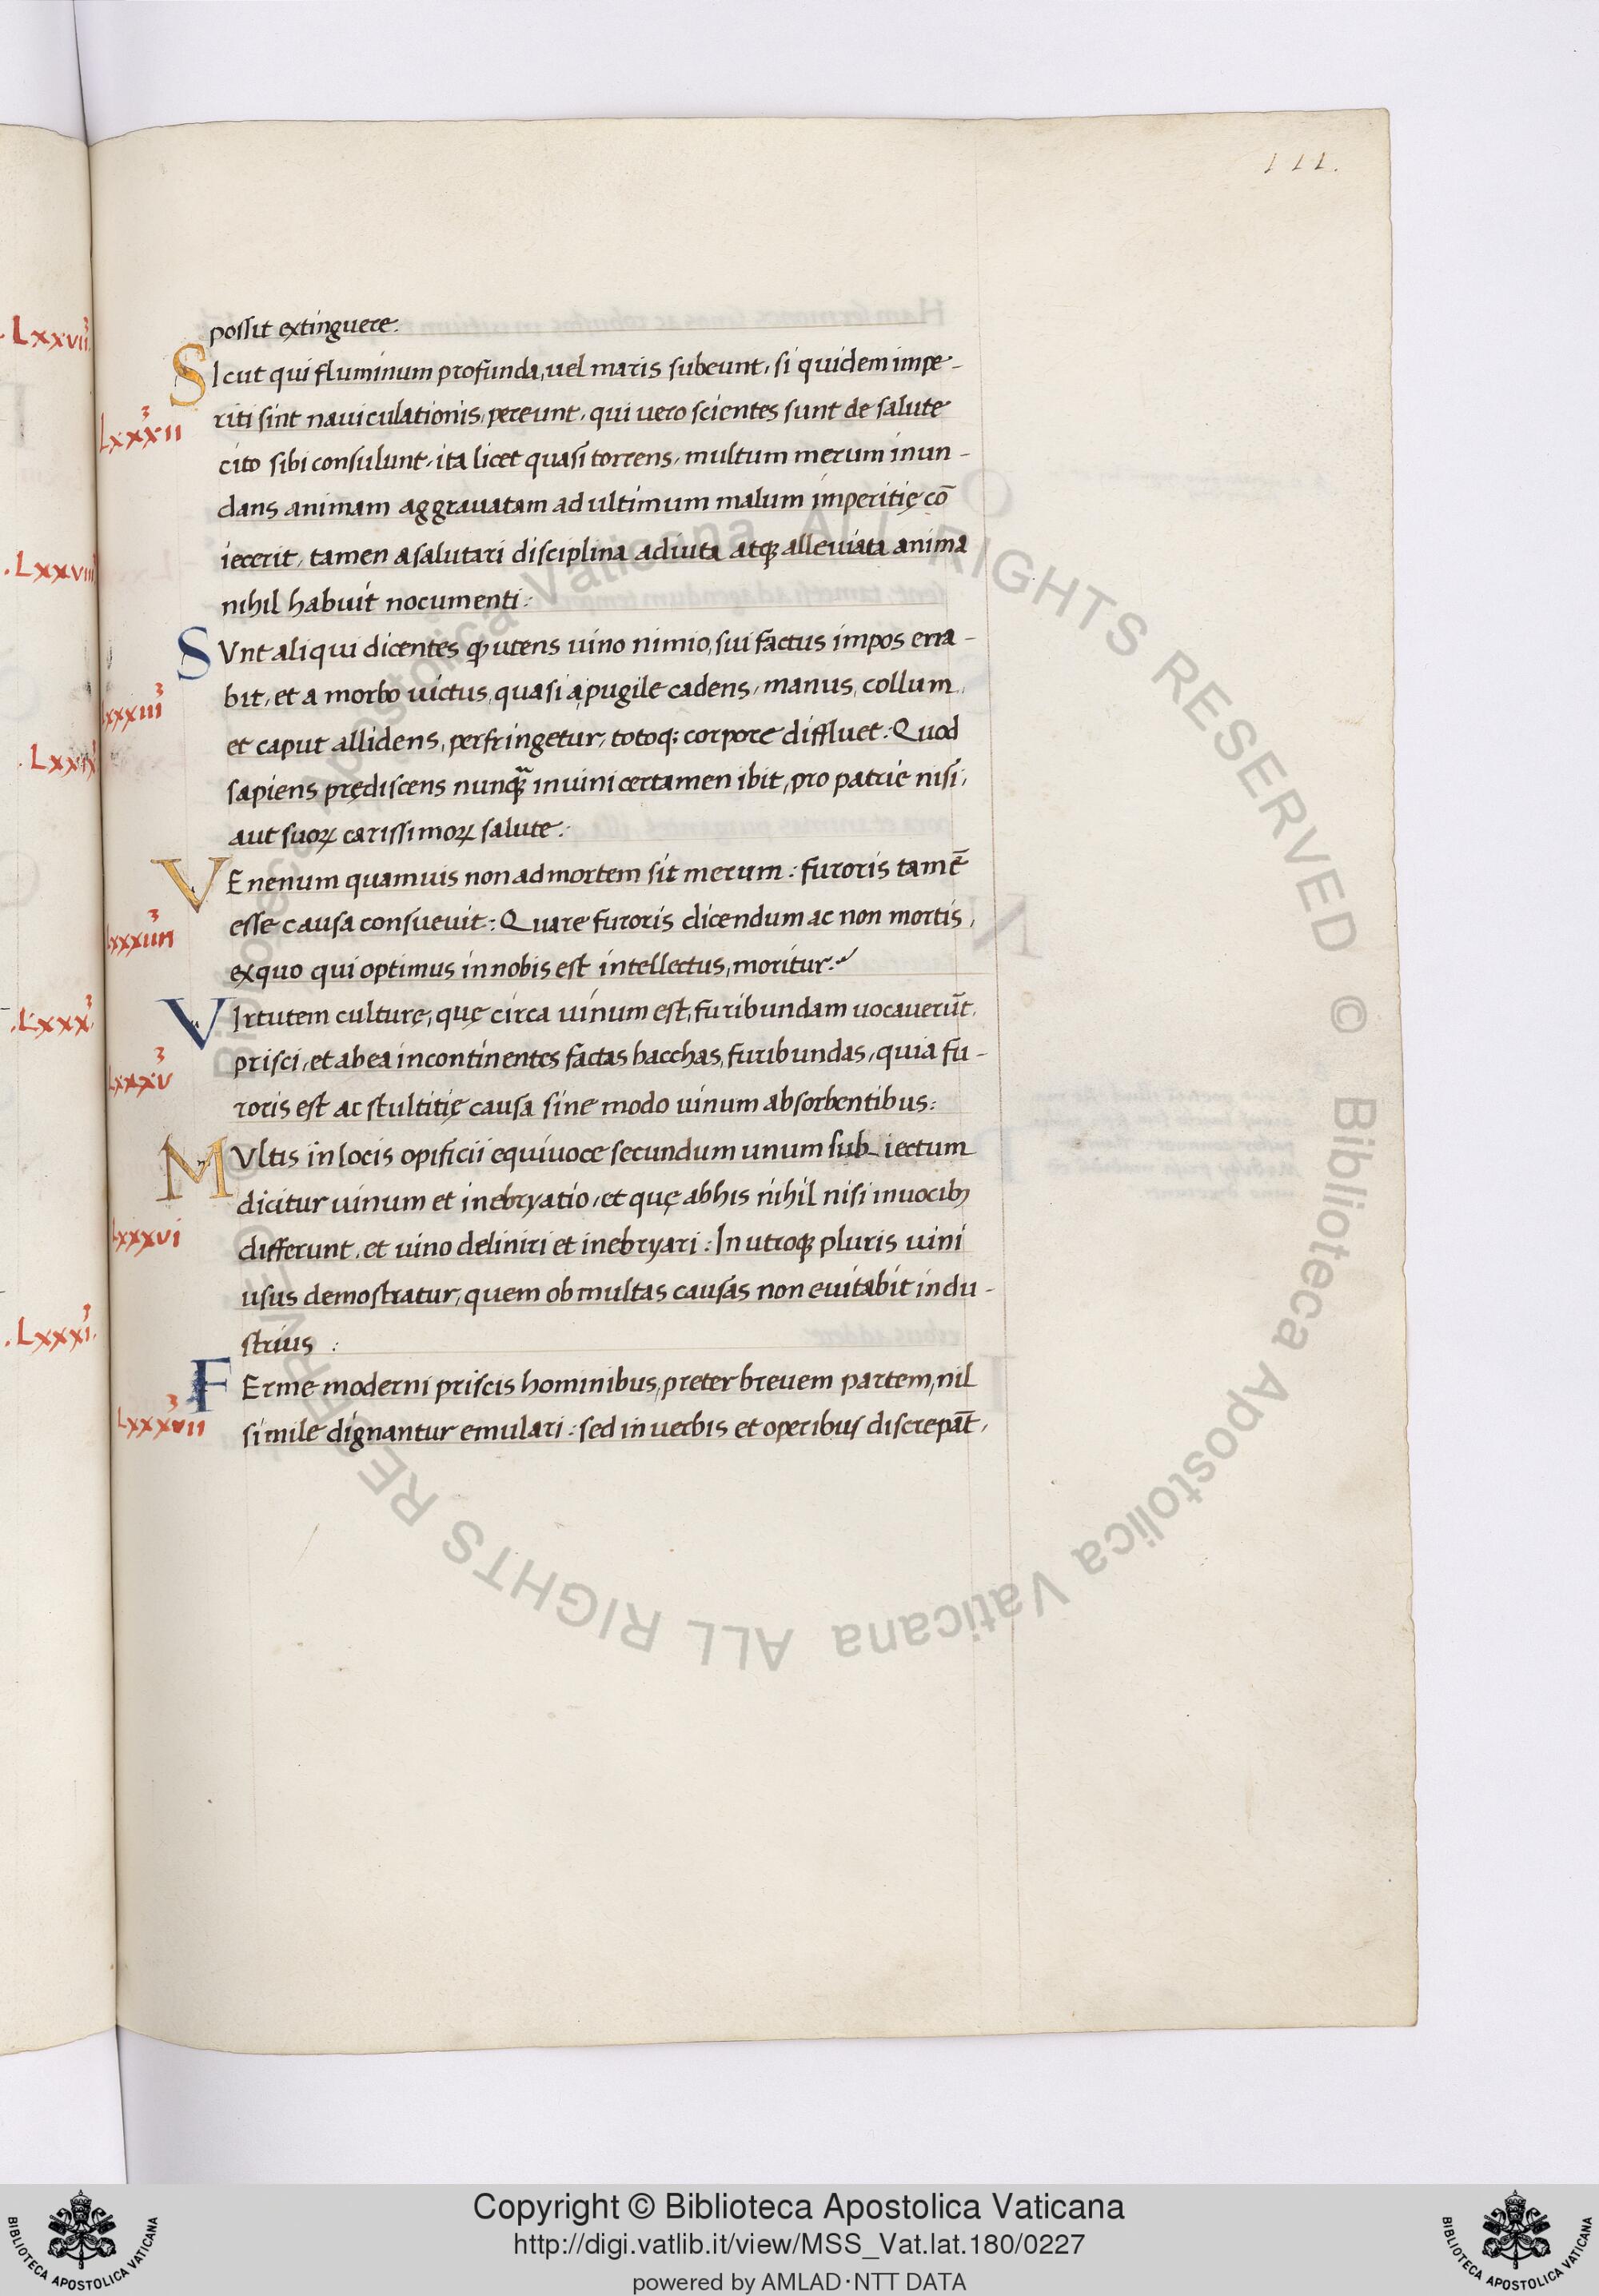 111.
possit extinguere.
SIcut qui fluminum profunda, uel maris subeunt, si quidem impe-
Lxxxii
riti sint nauiculationis, pereunt, qui uero scientes sunt de salute
cito sibi consulunt, ita licet quasi torrens, multum merum inun-
dans animam aggrauatam ad ultimum malum imperitię cō
iecerit, tamen a salutari disciplina adiuta atqꝫ alleuiata anima
nihil habuit nocumenti:
SVnt aliqui dicentes ꝙ utens uino nimio, sui factus impos erra-
bit, et a morbo uictus, quasi a pugile cadens, manus, collum,
Lxxxiii
et caput allidens, perfringetur, totoqꝫ corpore diffluet: Quod
sapiens prędiscens nunqꝫ in uini certamen ibit, pro patrie nisi,
aut suoꝝ carissimoꝝ salute:
VEnenum quamuis non ad mortem sit merum: furoris tamē
esse causa consueuit: Quare furoris dicendum ac non mortis,
Lxxxiiii
ex quo qui optimus in nobis est intellectus, moritur:
VIrtutem culturę, quę circa uinum est, furibundam uocauerūt
prisci, et ab ea incontinentes factas bacchas, furibundas, quia fu-
Lxxxv
roris est ac stultitię causa sine modo uinum absorbentibus:
MVltis in locis opificii equiuoce secundum unum sub iectum
dicitur uinum et inebryatio, et quę ab his nihil nisi in uocibꝫ
Lxxxvi
differunt, et uino deliniri et inebryari: In utroqꝫ pluris uini
usus demostratur, quem ob multas causas non euitabit indu-
strius :
FErme moderni priscis hominibus, preter breuem partem, nil
Lxxxvii
simile dignantur emulari: sed in uerbis et operibus discrepāt,
Lxxvii
.Lxxviii
.Lxxx.
.Lxxxi.
Copyright © Biblioteca Apostolica Vaticana
http://digi.vatlib.it/view/MSS_Vat.lat.180/0227
powered by AMLAD·NTT DATA
BIBLIOTECA APOSTOLICA VATICANA
BIBLIOTECA APOSTOLICA VATICANA
© Biblioteca Apostolica Vaticana ALL RIGHTS RESERVED © Biblioteca Apostolica Vaticana ALL RIGHTS RESERVED